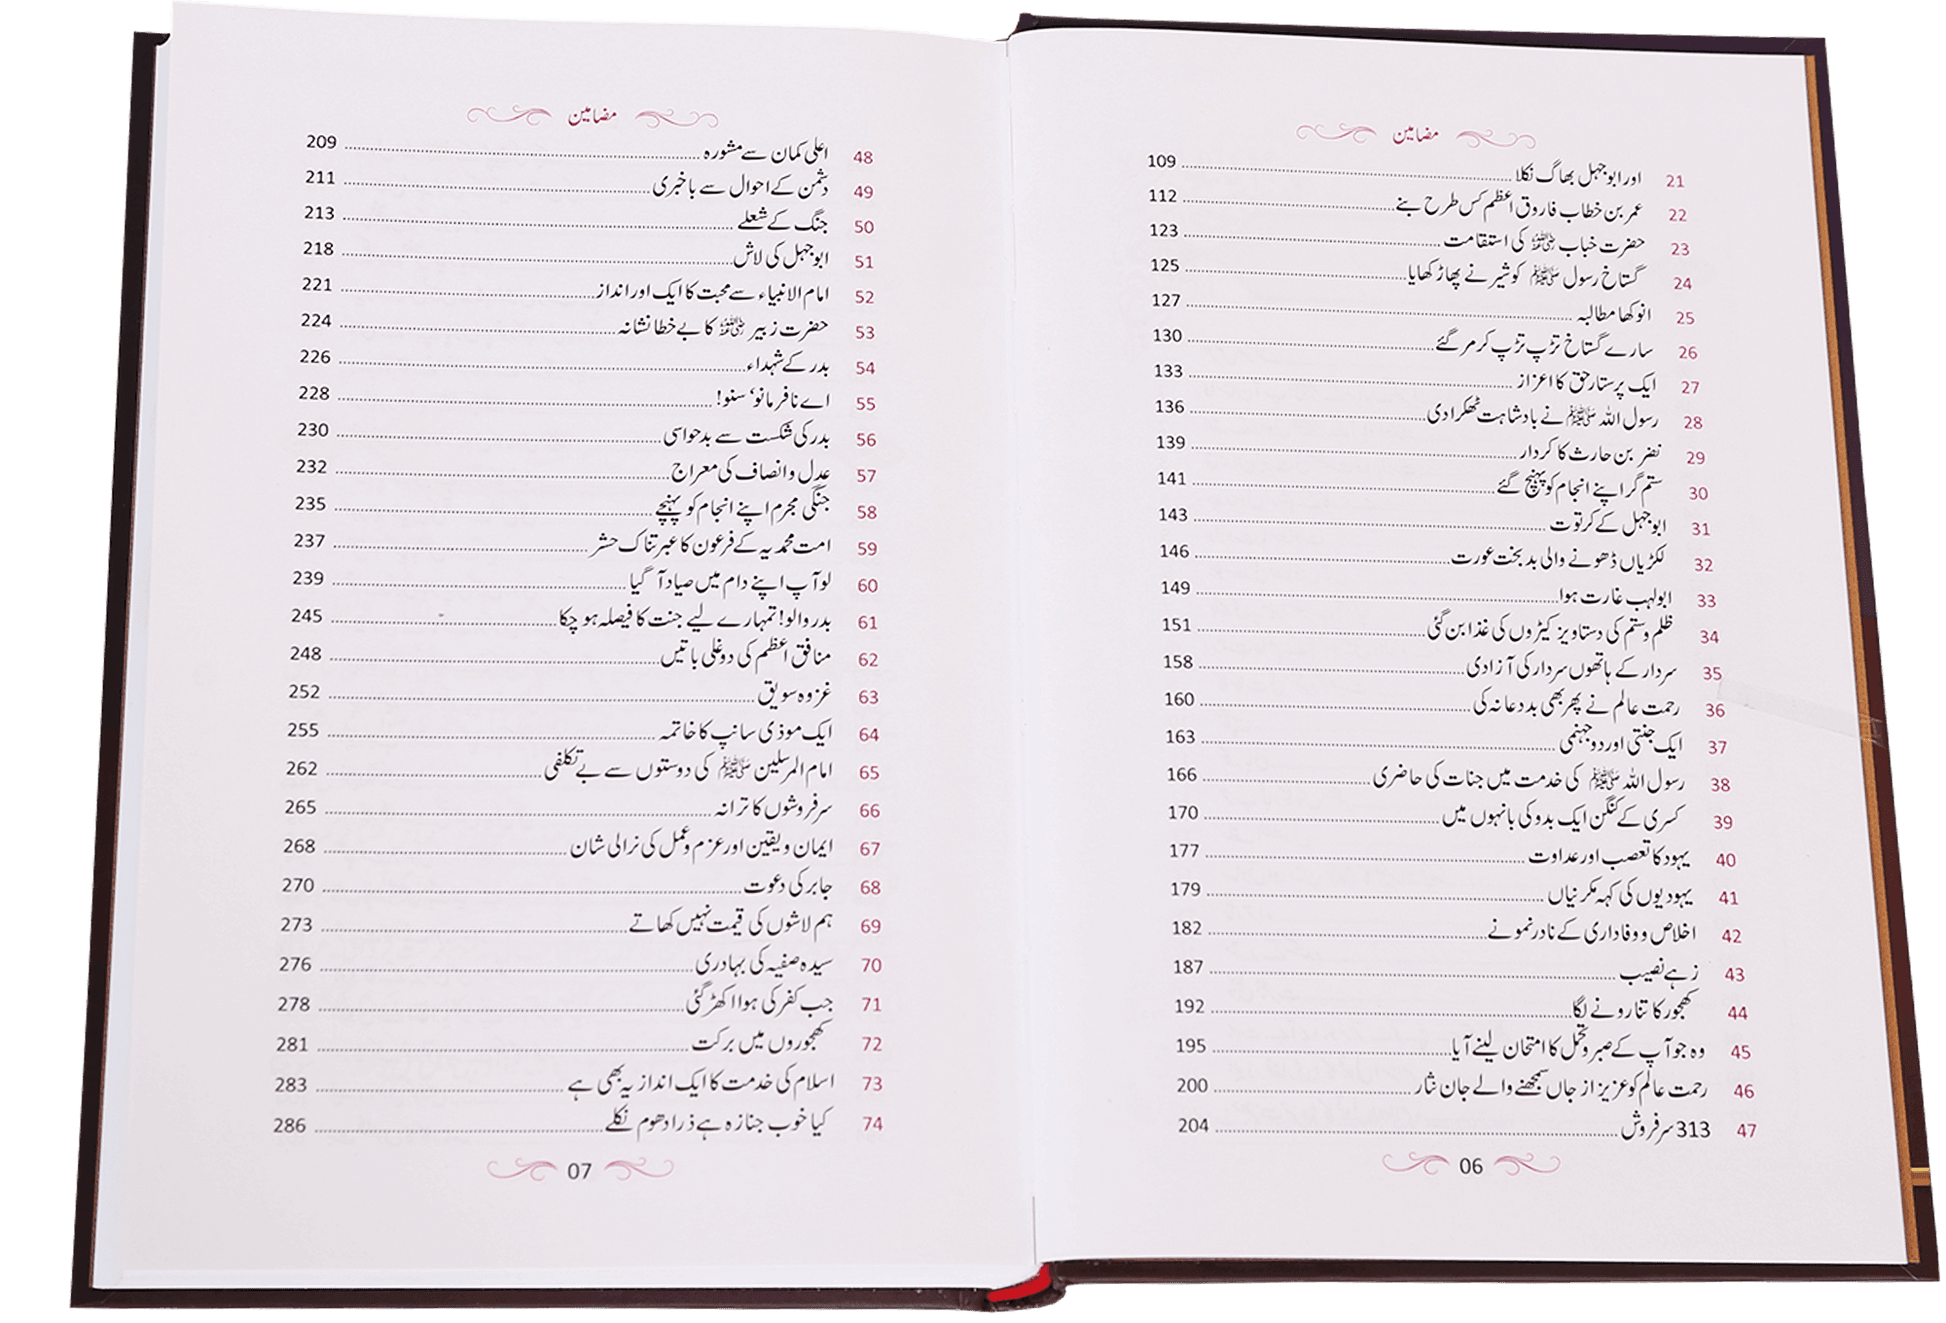 مضامین
21 اور ابو جہل بھاگ نکلا 109
22 عمر بن خطاب فاروق اعظم کس طرح بنے 112
23 حضرت خباب رضی اللہ عنہ کی استقامت 123
24 گستاخ رسول ﷺ کو شیر نے پھاڑ کھایا 125
25 انوکھا مطالبہ 127
26 سارے گستاخ تڑپ تڑپ کر مر گئے 130
27 ایک پرستار حق کا اعزاز 133
28 رسول اللہ ﷺ نے بادشاہت ٹھکرا دی 136
29 نضر بن حارث کا کردار 139
30 ستم گر اپنے انجام کو پہنچ گئے 141
31 ابو جہل کے کرتوت 143
32 لکڑیاں ڈھونے والی بد بخت عورت 146
33 ابولہب غارت ہوا 149
34 ظلم و ستم کی دستاویز کیڑوں کی غذا بن گئی 151
35 سردار کے ہاتھوں سردار کی آزادی 158
36 رحمت عالم نے پھر بھی بد دعا نہ کی 160
37 ایک جنتی اور دو جہنمی 163
38 رسول اللہ ﷺ کی خدمت میں جنات کی حاضری 166
39 کسری کے کنگن ایک بدو کی بانہوں میں 170
40 یہود کا تعصب اور عداوت 177
41 یہودیوں کی کہہ مکرنیاں 179
42 اخلاص و وفاداری کے نادر نمونے 182
43 زہے نصیب 187
44 کھجور کا تنا رونے لگا 192
45 وہ جو آپ کے صبر و تحمل کا امتحان لینے آیا 195
46 رحمت عالم کو عزیز از جاں سمجھنے والے جان نثار 200
47 313 سرفروش 204
06
مضامین
48 اعلی کمان سے مشورہ 209
49 دشمن کے احوال سے باخبری 211
50 جنگ کے شعلے 213
51 ابو جہل کی لاش 218
52 امام الانبیاء سے محبت کا ایک اور انداز 221
53 حضرت زبیر رضی اللہ عنہ کا بے خطا نشانہ 224
54 بدر کے شہداء 226
55 اے نافرمانو، سنو! 228
56 بدر کی شکست سے بدحواسی 230
57 عدل و انصاف کی معراج 232
58 جنگی مجرم اپنے انجام کو پہنچے 235
59 امت محمدیہ کے فرعون کا عبرتناک حشر 237
60 لو آپ اپنے دام میں صیاد آ گیا 239
61 بدر والو! تمہارے لیے جنت کا فیصلہ ہو چکا 245
62 منافق اعظم کی دوغلی باتیں 248
63 غزوہ سویق 252
64 ایک موذی سانپ کا خاتمہ 255
65 امام المرسلین ﷺ کی دوستوں سے بے تکلفی 262
66 سرفروشوں کا ترانہ 265
67 ایمان و یقین اور عزم و عمل کی نرالی شان 268
68 جابر کی دعوت 270
69 ہم لاشوں کی قیمت نہیں کھاتے 273
70 سیدہ صفیہ کی بہادری 276
71 جب کفر کی ہوا اکھڑ گئی 278
72 کھجوروں میں برکت 281
73 اسلام کی خدمت کا ایک انداز یہ بھی ہے 283
74 کیا خوب جنازہ ہے ذرا دھوم نکلے 286
07